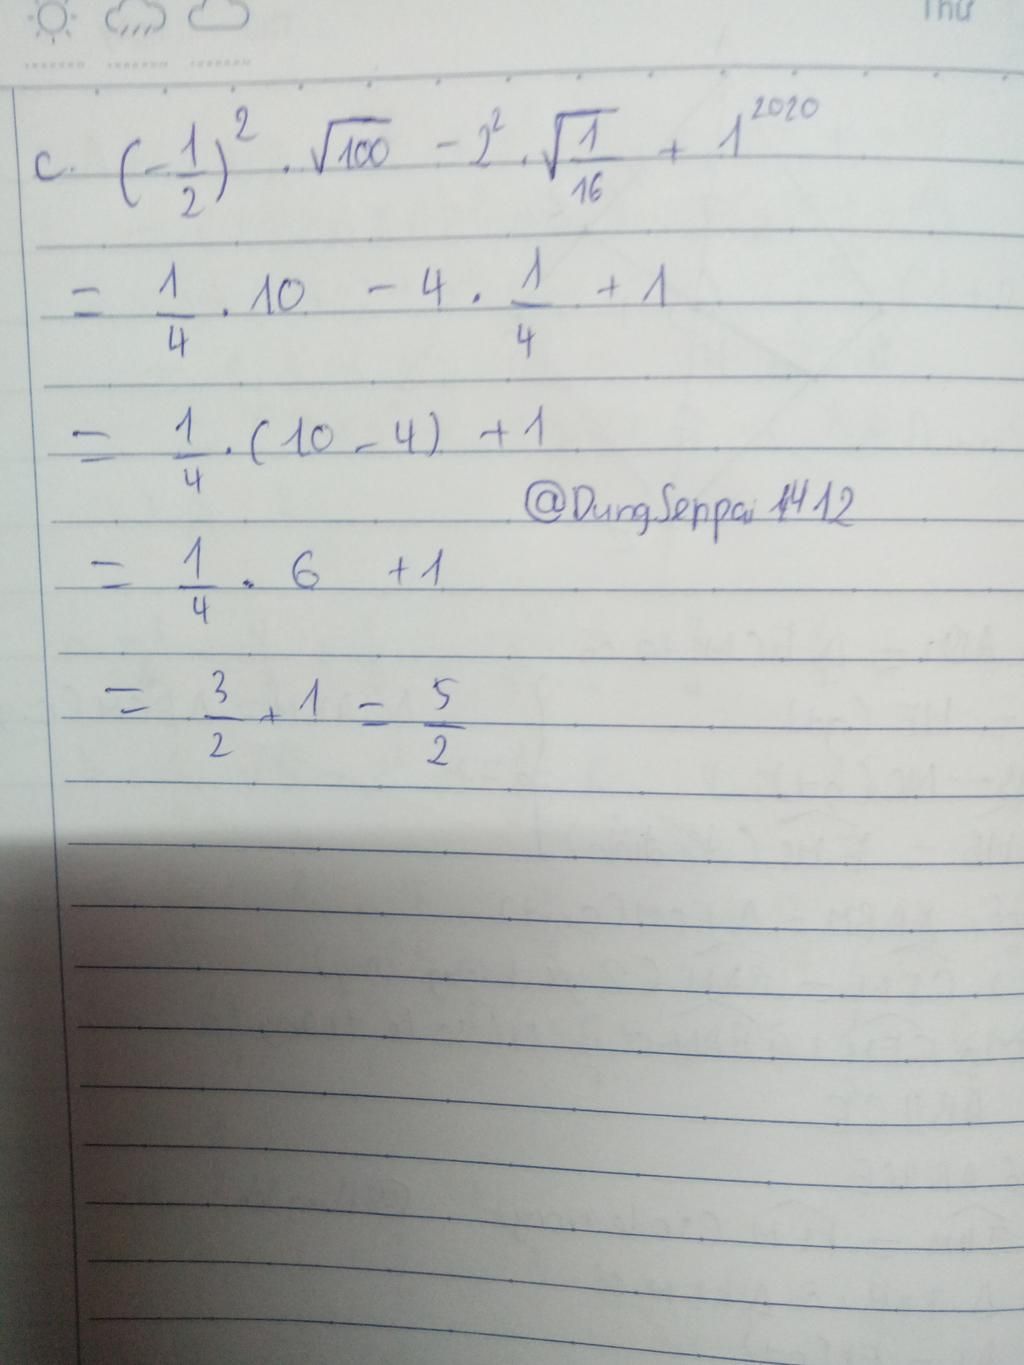 Thứ
c. (-1/2)² . √100 - 2² . √1/16 + 1²⁰²⁰
= 1/4 . 10 - 4 . 1/4 + 1
= 1/4 . (10 - 4) + 1
@DungSenpai 1412
= 1/4 . 6 + 1
= 3/2 + 1 = 5/2